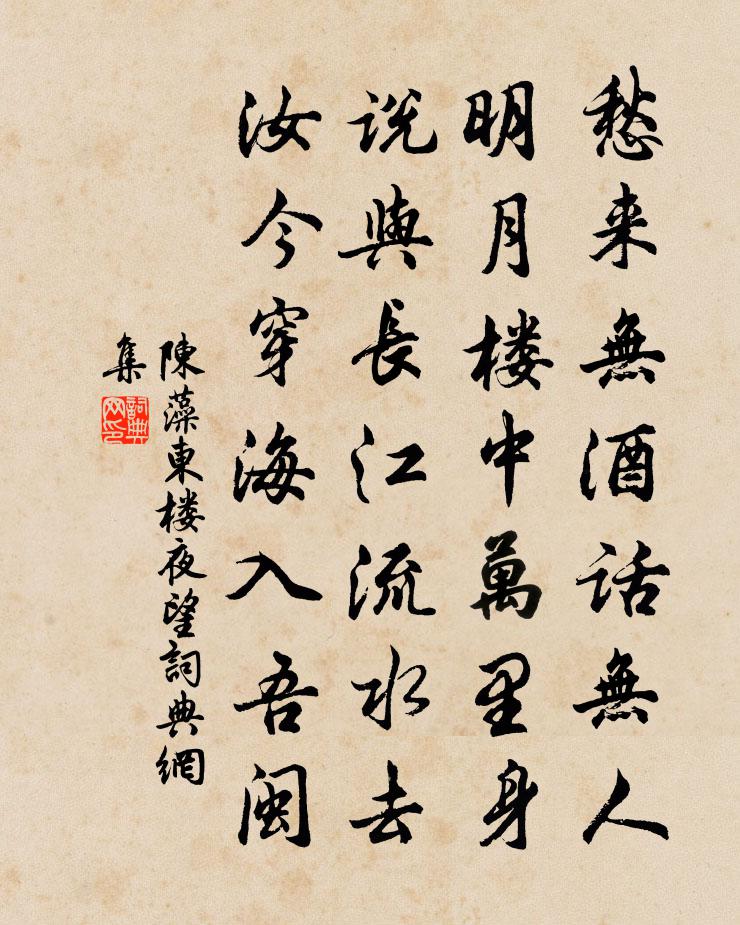 愁来無酒話無人
明月楼中萬里身
説與長江流水去
汝今穿海入吾闽
陳藻東楼夜望詞典網
集
詞典网印